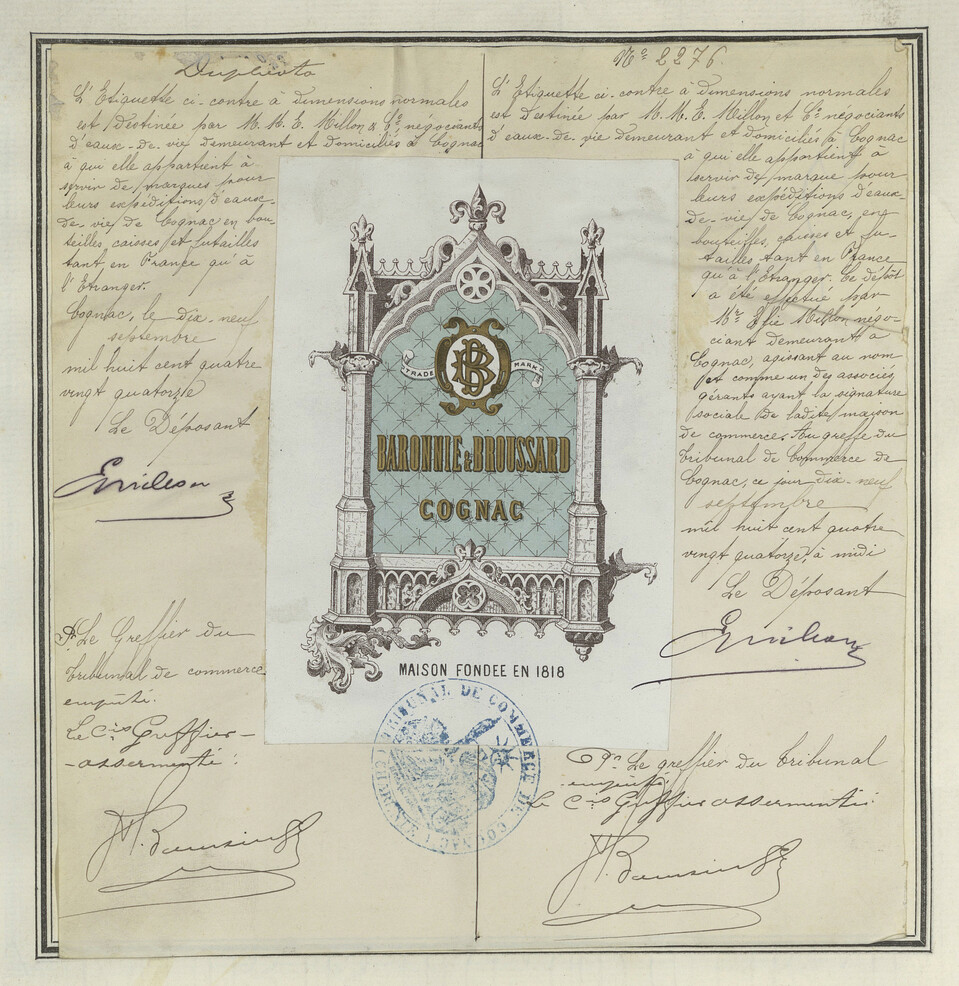 Duplicata
L'Etiquette ci-contre à dimensions normales
est destinée par M.M. E. Millon & Cie négociants
d'eaux-de-vie demeurant et domiciliés à Cognac
à qui elle appartient à
servir de marques pour
leurs expéditions d'eaux-
de-vie de Cognac en bou-
teilles caisses et futailles
tant en France qu'à
l'Etranger.
Cognac, le dix-neuf
septembre
mil huit cent quatre
vingt quatorze
Le Déposant
Pr Le Greffier du
tribunal de commerce
empêché.
Le Cis Greffier-
-assermenté:
No 2276.
L'Etiquette ci-contre à dimensions normales
est destinée par M.M. E. Millon et Cie négociants
d'eaux-de-vie demeurant et domiciliés à Cognac
à qui elle appartient à
servir de marque pour
leurs expéditions d'eaux-
de-vie de Cognac, en
bouteilles, caisses et fu-
tailles tant en France
qu'à l'Etranger. Ce dépôt
a été effectué par
Mr Elie Millon négo-
ciant demeurant à
Cognac, agissant au nom
et comme un des associés
gérants ayant la signature
sociale de ladite maison
de commerce. Au greffe du
tribunal de Commerce de
Cognac, ce jour dix-neuf
septembre
mil huit cent quatre
vingt quatorze, à midi
Le Déposant
Pr Le greffier du tribunal
empêché,
Le Cis Greffier assermenté:
TRADE MARK
BB
BARONNIE & BROUSSARD
COGNAC
MAISON FONDEE EN 1818
TRIBUNAL DE COMMERCE DE COGNAC (CHARENTE)